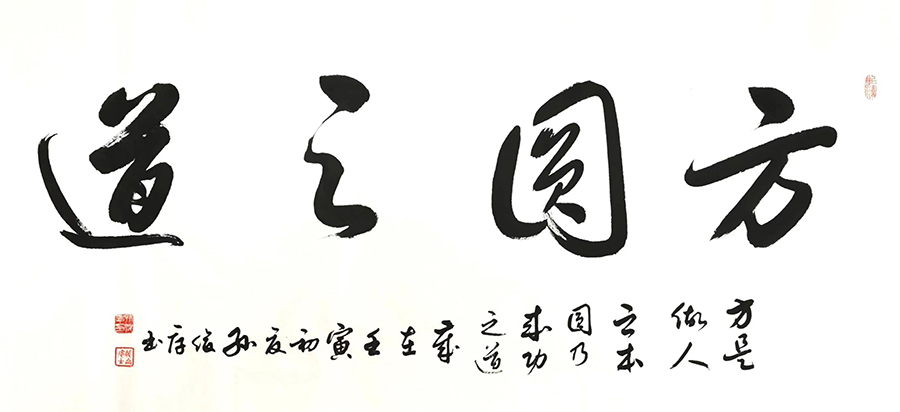 方圆之道
方是
做人
之本
圆乃
成功
之道
岁在壬寅初夏孙俊存书